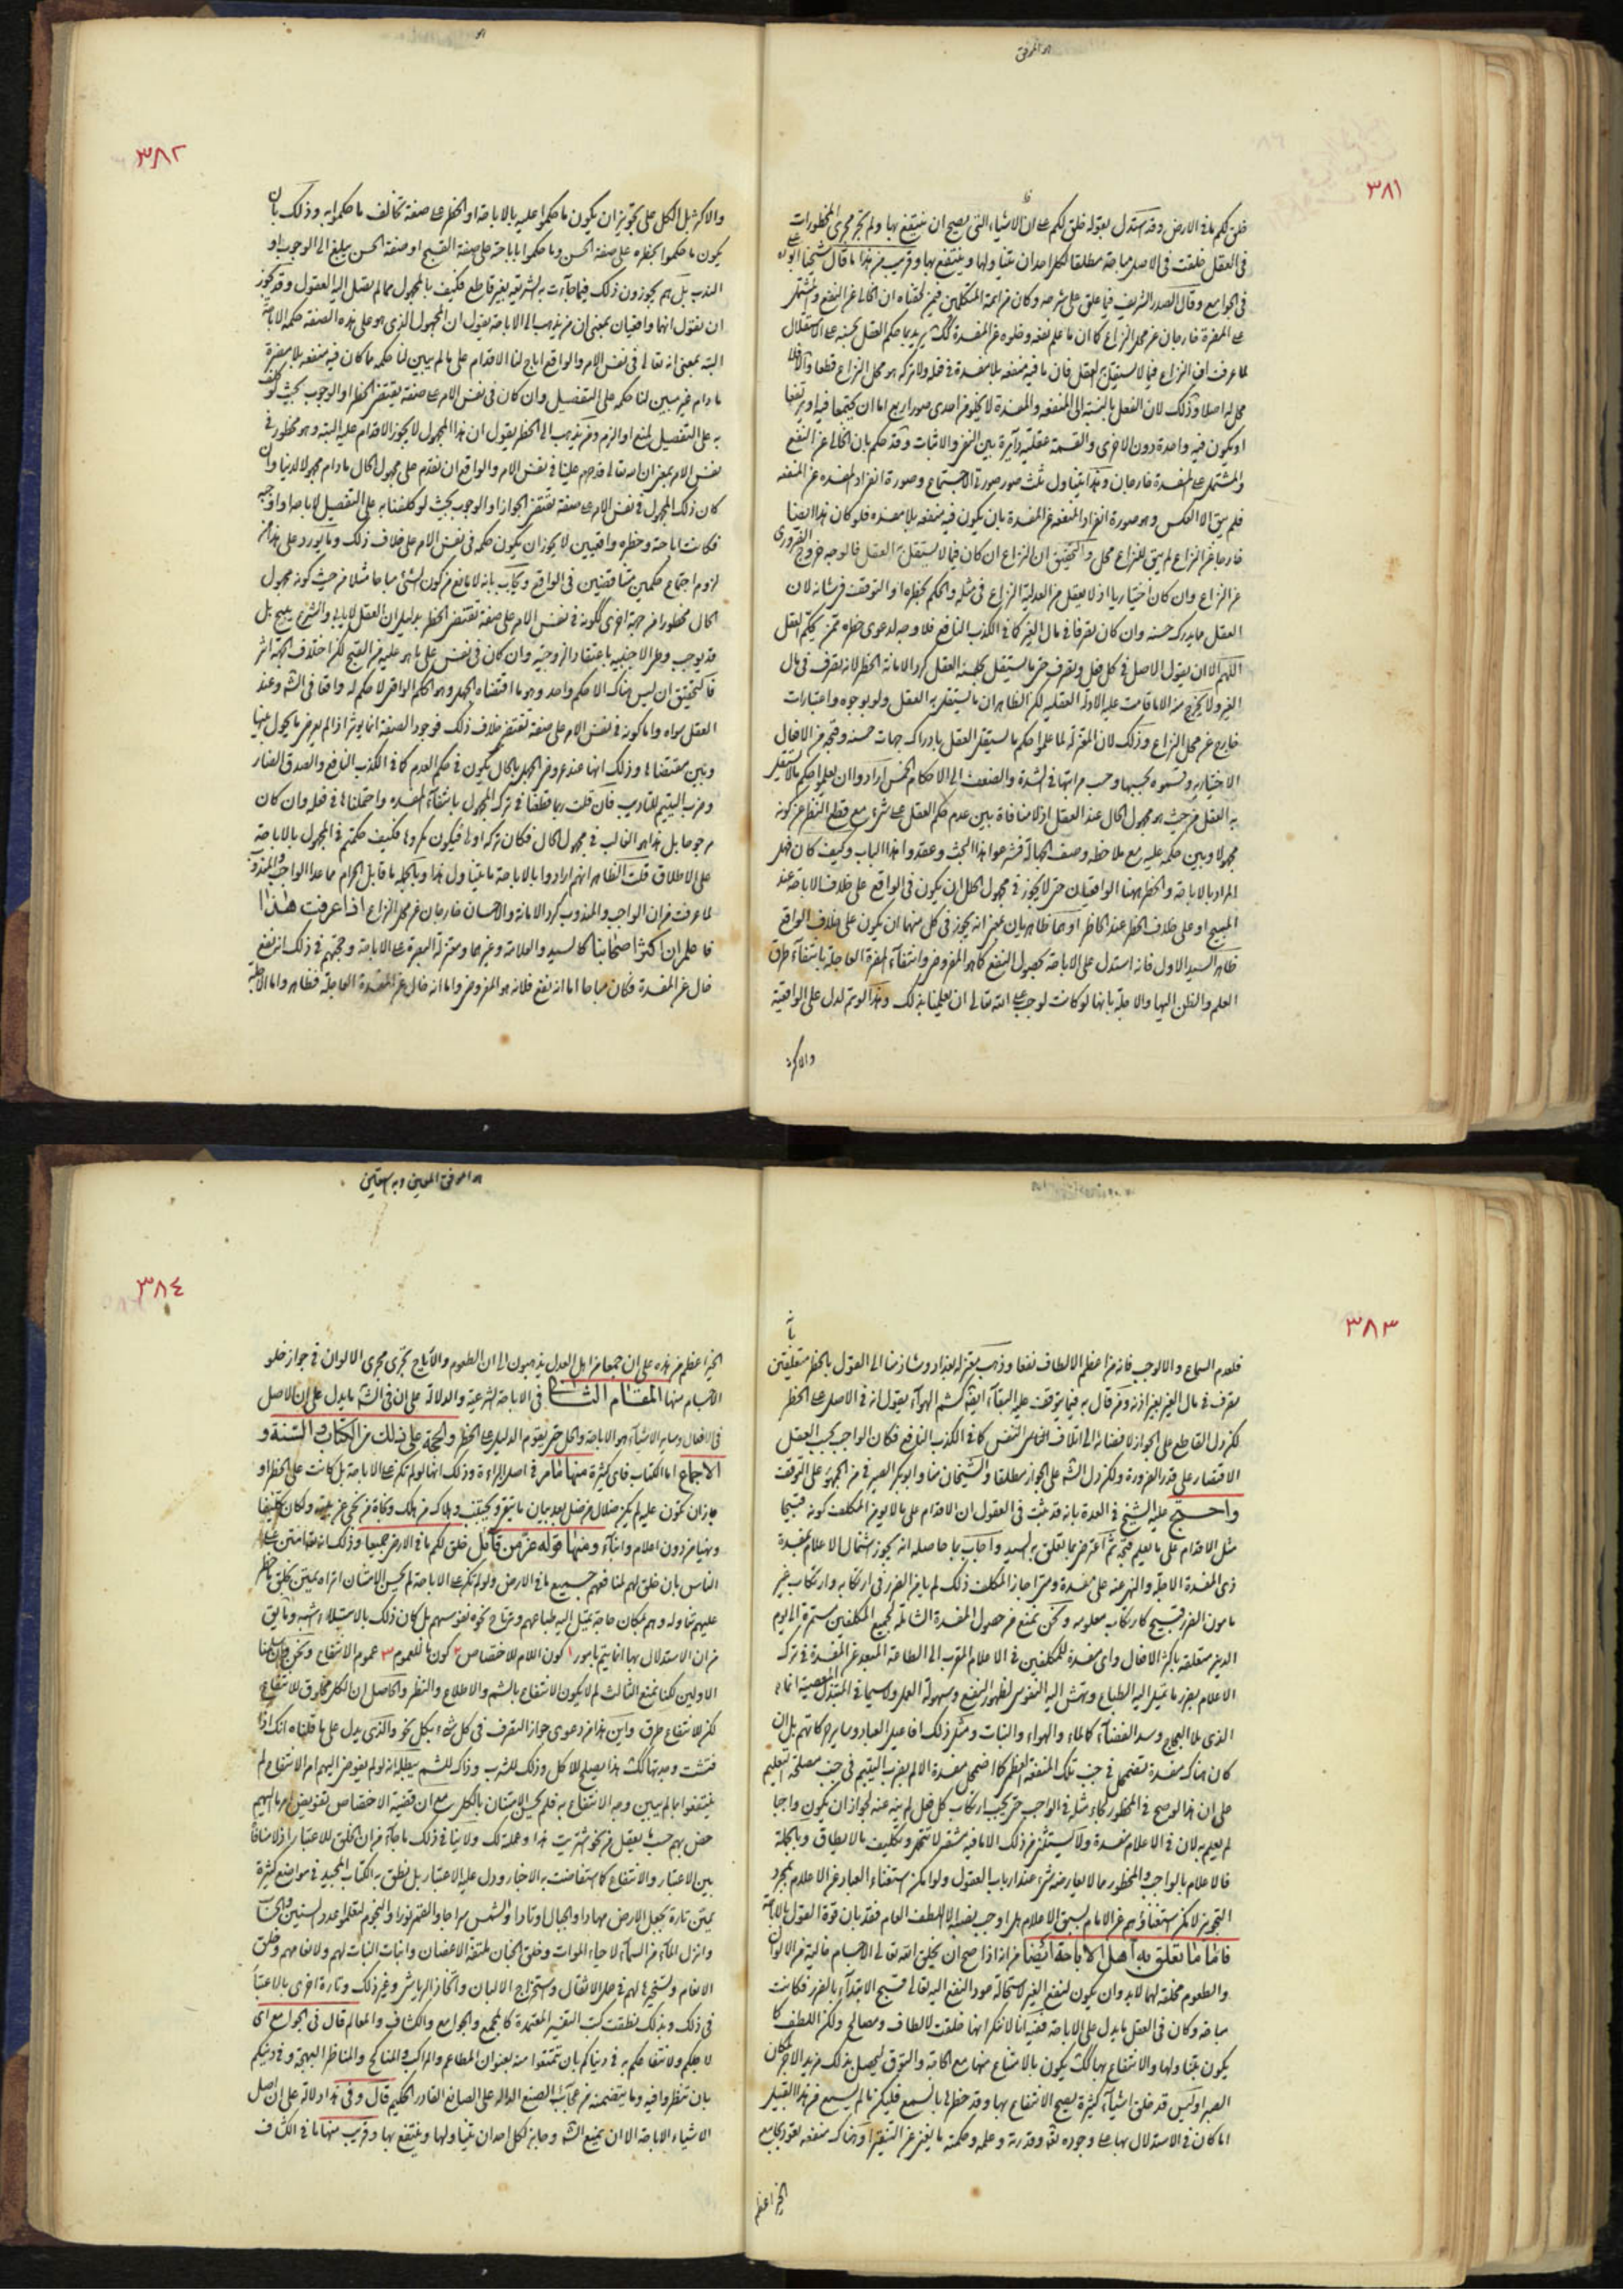 ٣٨١
خلق لكم ما فى الارض وقد استدل بقوله خلق لكم على ان الاشياء التى يصح ان ينتفع بها ولم تجر مجرى المحظورات
فى العقل خلقت فى الاصل مباحة مطلقا لكل احد ان يتناولها وينتفع بها وقريب من هذا ما قال شيخنا ابو على
فى الجوامع وقال الصدر الشريف فيما علق على شرحه وكان من ائمة المتكلمين فيمن لحقناه ان الخالى عن النفع والمشتمل
على المضرة خارجان عن محل النزاع كما ان ما علم نفعه وخلوه عن المفسدة كذلك يريد بما حكم العقل بحسنه على الاستقلال
لما عرفت ان النزاع فيما لا يستقل به العقل فان ما فيه منفعة بلا مفسدة فى فعله ولا تركه هو محل النزاع قطعا والا فلا
محل له اصلا وذلك لان الفعل بالنسبة الى المنفعة والمفسدة لا يخلو من احدى صور اربع اما ان يجتمعا فيه او يرتفعا
او يكون فيه واحدة دون الاخرى والقسمة عقلية دايرة بين النفى والاثبات وقد حكم بان الخالى عن النفع
والمشتمل على المفسدة خارجان وهذا يتناول ثلث صور صورتى الاجتماع وصورة انفراد المفسده عن المنفعه
فلم يبق الا العكس وهو صورة انفراد المنفعة عن المفسدة بان يكون فيه منفعه بلا مفسده فلو كان هذا ايضا
خارجا عن النزاع لم يبق للنزاع محل والتحقيق ان النزاع ان كان فيما لا يستقل به العقل فالوجه خروج الضرورى
عن النزاع وان كان اختياريا اذ لا يعقل من العدلية النزاع فى مثله والحكم بحظره او التوقف فى شانه لان
العقل مما يدرك حسنه وان كان تصرفا فى مال الغير كما فى الكذب النافع فلا وجه لدعوى حظره ممن يحكم العقل
اللهم الا ان يقول الاصل فى كل فعل وتصرف حتى ما يستقل بحسنه العقل كرد الامانة الحظر لانه تصرف فى مال
الغير ولا يخرج منه الا ما قامت عليه الادلة العقليه لكن الظاهر ان ما يستقل به العقل ولو بوجوه واعتبارات
خارج عن محل النزاع وذلك لان المعتزلة لما علموا حكم ما يستقل العقل بادراك جهات حسنه وقبحه من الافعال
الاختياريه وقسموه بحسبها وحسب مراتبها فى الشدة والضعف الى الاحكام الخمس ارادوا ان يعلموا حكم ما لا يستقل
به العقل من حيث هو مجهول الحال عند العقل اذ لا منافاة بين عدم حكم العقل على شىء مع قطع النظر عن كونه
مجهولا وبين حكمه عليه مع ملاحظة وصف الجهالة فشرعوا هذا البحث وعقدوا هذا الباب وكيف كان فهل
المراد بالاباحة والحظر ههنا الواقعيان حتى لا يجوز فى مجهول الحال ان يكون فى الواقع على خلاف الاباحة عند
المبيح او على خلاف الحظر عند الحاظر او هما ظاهريان بمعنى انه يجوز فى كل منهما ان يكون على خلاف الواقع
ظاهر السيد الاول فانه استدل على الاباحة بحصول النفع كما هو المفروض وانتفاء المضرة العاجلة بانتفاء طرق
العلم والظن اليها والاجلة بانها لو كانت لوجب على الله تعالى ان يعلمنا بذلك وهذا لو تم لدل على الواقعية
والاكثر
٣٨٢
والاكثر بل الكل على تجويز ان يكون ما حكموا عليه بالاباحة او الحظر على صفة تخالف ما حكموا به وذلك بان
يكون ما حكموا بحظره على صفة الحسن وما حكموا باباحته على صفة القبيح او صفة الحسن يبلغ الى الوجوب او
الندب بل هم يجوزون ذلك فيما جاءت به الشريعة بغير قاطع فكيف بالمجهول مما لم يصل اليه العقول وقد يجوز
ان نقول انهما واقعيان بمعنى ان من يذهب الى الاباحة يقول ان المجهول الذى هو على هذه الصفة حكمه الاباحة
البتة بمعنى انه تعالى فى نفس الامر والواقع اباح لنا الاقدام على ما لم يبين لنا حكمه ما كان فيه منفعه بلا مضرة
ما دام غير مبين لنا حكمه على التفصيل وان كان فى نفس الامر على صفة يقتضى الحظر او الوجوب بحيث لو كلف
به على التفصيل لمنع او الزم ومن يذهب الى الحظر يقول ان هذا المجهول لا يجوز الاقدام عليه البتة وهو محظور فى
نفس الامر بمعنى ان الله تعالى قد حرم علينا فى نفس الامر والواقع ان نقدم على مجهول الحال ما دام مجهولا لدينا وان
كان ذلك المجهول فى نفس الامر على صفة تقتضى الجواز او الوجوب بحيث لو كلفنا به على التفصيل لاباحه او اوجبه
فكانت اباحته وحظره واقعيين لا يجوز ان يكون حكمه فى نفس الامر على خلاف ذلك وما يورد على هذا من
لزوم اجتماع حكمين متناقضين فى الواقع ويجاب بانه لا مانع من كون الشىء مباحا مثلا من حيث كونه مجهول
الحال محظورا من جهة اخرى لكونه فى نفس الامر على صفة تقتضى الحظر بدليل ان العقل لا يابى والشرع يبيح بل
قد يوجب وطى الاجنبيه باعتقاد الزوجية وان كان فى نفسه على ما هو عليه من القبح لكن اختلاف الجهة اثر
فالتحقيق ان ليس هناك الا حكم واحد وهو ما اقتضاه الجهل وهو الحكم الواقعى لا حكم له واقعا فى الشرع وعند
العقل سواه واما كونه فى نفس الامر على صفة تقتضى خلاف ذلك فوجود الصفة انما يؤثر اذا لم يعرض ما يحول بينها
وبين مقتضاها وذلك انها عند عروض الجهل بالحال يكون فى حكم العدم كما فى الكذب النافع والصدق الضار
وضرب اليتيم للتاديب فان قلت ربما قطعنا فى ترك المجهول بانتفاء المفسده واحتملناها فى فعله وان كان
مرجوحا بل هذا هو الغالب فى مجهول الحال فكان تركه اولى فيكون مكروها فكيف حكمتم فى المجهول بالاباحة
على الاطلاق قلت الظاهر انهم ارادوا بالاباحة ما يتناول هذا وبالجملة ما قابل الحرام مما عدا الواجب والمندوب
لما عرفت من ان الواجب والمندوب كرد الامانة والاحسان خارجان عن محل النزاع اذا عرفت هذا
فاعلم ان اكثر اصحابنا كالسيد والعلامة وغيرهما ومعتزلة البصرة على الاباحة وحجتهم فى ذلك انه نفع
خال عن المفسدة فكان مباحا اما انه نفع فلانه هو المفروض واما انه خال عن المفسدة العاجلة فظاهر واما الاجلة
٣٨٣
فلعدم السماع والا لوجب فانه من اعظم الالطاف نفعا وذهب معتزلة بغداد وشاذ منا الى القول بالحظر متعلقين بانه
تصرف فى مال الغير بغير اذنه ومن قال به فيما يتوقف عليه البقاء ايضا كشم الهواء يقول انه فى الاصل على الحظر
لكن دل القاطع على الجواز لافضائه الى اتلاف النفس كما فى الكذب النافع فكان الواجب بحسب العقل
الاقتصار على قدر الضرورة ولكن دل الشرع على الجواز مطلقا والشيخان منا وابو بكر الصيرفى من الجمهور على الوقف
واحتج عليه الشيخ فى العدة بانه قد ثبت فى العقول ان الاقدام على ما لا يومن المكلف كونه قبيحا
مثل الاقدام على ما يعلم قبحه ثم اعترض بما تعلق به السيد واجاب بما حاصله انه يجوز اشتمال الاعلام بمفسدة
ذى المفسدة الاجلة والنهى عنه على مفسدة ومتى اجاز المكلف ذلك لم يامن الضرر فى ارتكابه وارتكاب غير
مامون الضرر قبيح كارتكاب معلومه ونحن نمنع من حصول المفسدة الشاملة لجميع المكلفين مستمرة الى يوم
الدين متعلقة باكثر الافعال واى مفسدة للمكلفين فى الاعلام المقرب الى الطاعة المبعد عن المفسدة فى ترك
الاعلام بضرر ما تميل اليه الطباع وتهش اليه النفوس لظهور النفع وسهولة العمل ولا سيما فى المبتذل
الذى ملا الفجاج وسد الفضاء كالماء والهواء والنبات ومثل ذلك افاعيل العباد وساير حركاتهم بل ان
كان هناك مفسدة تضمحل فى جنب تلك المنفعة العظمى كما اضمحل مفسدة الالم بضرب اليتيم فى جنب مصلحة التعليم
على ان هذا لو صح فى المحظور لجاء مثله فى الواجب حتى يجب ارتكاب كل فعل لم ينه عنه لجواز ان يكون واجبا
لم يعلم به لان فى الاعلام مفسدة ولا يستثنى من ذلك الا ما فيه مشقة لا تتحمل وتكليف بالا يطاق وبالجملة
فالاعلام بالواجب والمحظور مما لا يعارضه شىء عند ارباب العقول ولو امكن استغناء العباد عن الاعلام بمجرد
التجويز لامكن استغناؤهم عن الامام لسبق الاعلام بل اوجب بفضله الا اللطف العام فقد بان قوة القول بالاباحة
فاما ما تعلق به اهل الاباحة ايضا من انه اذا صح ان يخلق الله تعالى الاجسام خالية من الالوان
والطعوم فخلقه لها لابد وان يكون لنفع الغير لاستحالة عود النفع اليه تعالى وقبح الابتداء بالضرر فكانت
مباحة وكان فى العقل ما يدل على الاباحة ففيه انا لا ننكر انها خلقت لالطاف ومصالح ولكن اللطف كما
يكون بتناولها والانتفاع بها كذلك يكون بالامتناع منها مع الحاجة والتوق ليحصل بذلك مزيد الاجر لمكان
الصبر او ليس قد خلق اشياء كثيرة يصح الانتفاع بها وقد حظرها بالسمع فليكن ما لم يسمع من هذا القبيل
اما كان فى الاستدلال بها على وجوده تعالى وقدرته وعلمه وحكمته ما يغنى عن التنقير او هناك منفعه تعود بجامع
الخير اعظم
٣٨٤
الخير اعظم من هذه على ان جمعا من اهل العدل يذهبون الى ان الطعوم والاراييح تجرى مجرى الالوان فى جواز خلو
الاجسام منها المقام الثانى فى الاباحة الشرعية والدلالة على ان فى الشرع ما يدل على ان الاصل
فى الافعال وساير الاشياء هو الاباحة والحل حتى يقوم الدليل على الحظر والحجة على ذلك من الكتاب والسنة و
الاجماع اما الكتاب فاى كثيرة منها ما مر فى اصل البراءة وذلك انها لو لم تكن على الاباحة بل كانت على الحظر او
جاز ان تكون عليه لم يكن ضلال من ضل بعد بيان ما يتقى ويجتنب وهلاك من هلك ونجاة من نجى عن بينة ولكان تكليفا
ونهيا من دون اعلام وانباء ومنها قوله عز من قائل خلق لكم ما فى الارض جميعا وذلك انه تعالى امتن على
الناس بان خلق لهم لمنافعهم جميع ما فى الارض ولو لم تكن على الاباحة لم يحسن الامتنان اتراه يمتن بخلق ما حظر
عليهم تناوله وهم بمكان حاجة تميل اليه طباعهم وترتاح نحوه نفوسهم بل كان ذلك بالابتلاء اشبه وما يق
من ان الاستدلال بها انما يتم بامور ١ كون اللام للاختصاص ٢ كون ما للعموم ٣ عموم الانتفاع ونحن وان سلمنا
الاولين لكنا نمنع الثالث لم لا يكون الانتفاع بالشم والاطلاع والنظر والحاصل ان الكل مخلوق للانتفاع
لكن للانتفاع طرق واين هذا من دعوى جواز التصرف فى كل شىء بكل نحو والذى يدل على ما قلناه انك اذا
فتشت وجدتها كذلك هذا يصلح للاكل وذلك للشرب وذاك للشم يبطله انه لو لم يفوض اليهم امر الانتفاع لم
ينتفعوا بما لم يبين وجه الانتفاع به فلم يحسن الامتنان بالكل مع ان قضية الاختصاص تفويض امرها اليهم
حض بهم حسب ما يعقل من نحو شريت هذا وعملته لك ولا ينافى ذلك ما جاء من ان الخلق للاعتبار اذ لا منافاة
بين الاعتبار والانتفاع كما استفاضت به الاخبار ودل عليه الاعتبار بل نطق به الكتاب المجيد فى مواضع كثيرة
يمتن تارة بجعل الارض مهادا والجبال اوتادا والشمس سراجا والقمر نورا والنجوم لتعلموا عدد السنين والحساب
وانزل الماء من السماء لاحياء الموات وخلق الجنان ملتفة الاغصان وانبات النبات لهم ولانعامهم وخلق
الانعام وتسخيرها لهم فى حمل الاثقال واستخراج الالبان واتخاذ الرياش وغير ذلك وتارة اخرى بالاعتبار
فى ذلك وبذلك نطقت كتب التفسير المعتمدة كالمجمع والجوامع والكشاف والمعالم قال فى الجوامع اى
لاجلكم ولانتفاعكم به فى دنياكم بان تتمتعوا منه بفنون المطاعم والمراكب والمناكح والمناظر البهجة وفى دينكم
بان تنظروا فيه وما يتضمنه من عجائب الصنع الدالة على الصانع القادر الحكيم قال وفى هذا دلالة على ان اصل
الاشياء الاباحة الا ان يمنع الشرع وجايز لكل احد ان يتناولها وينتفع بها وقريب منها ما فى الكشاف